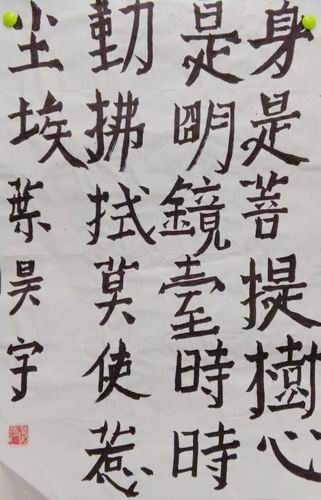 身是菩提樹心
是明鏡臺時時
勤拂拭莫使惹
尘埃葉昊宇